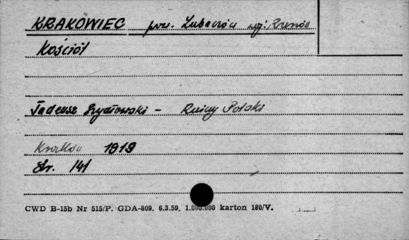 KRAKOWIEC pow. Lubaczów woj:
Kościół
Tadeusz Szydłowski - Ruiny Polski
Kraków 1919
Str. 141
CWD B-15b Nr 515/P. GDA-809. 6.3.59. 1.000.000 karton 180/V.